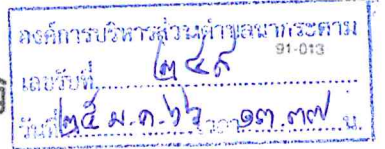 องค์การบริหารส่วนตำบลนากระตาม
91-013
เลขรับที่ ๒๔๙
วันที่ ๒๕ ม.ค. ๖๖ เวลา ๑๓.๓๗ น.